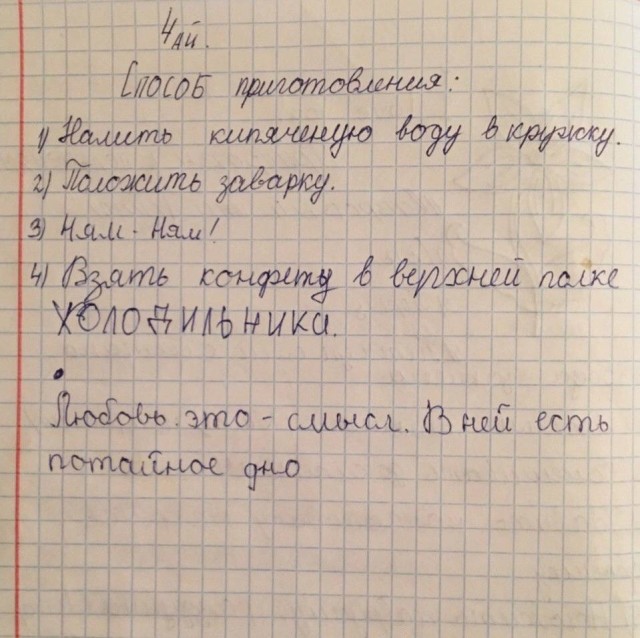 Чай.
Способ приготовления:
1) Налить кипяченую воду в кружку.
2) Положить заварку.
3) Ням - Ням!
4) Взять конфеты в верхней полке
ХОЛОДИЛЬНИКА.
Любовь это - смысл. В ней есть
потайное дно